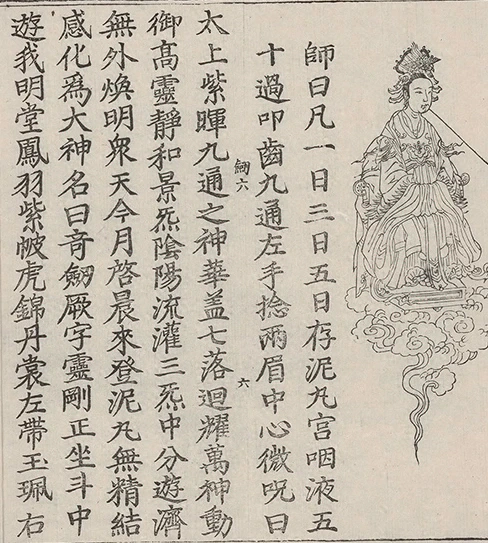 師曰凡一日三日五日存泥丸宮咽液五
十過叩齒九通左手捻兩眉中心微呪曰
太上紫暉九通之神華盖七落迴耀萬神動
御高靈靜和景炁陰陽流灌三炁中分遊濟
無外煥明衆天今月啓晨來登泥丸無精結
感化爲大神名曰奇劒厥字靈剛正坐斗中
遊我明堂鳳羽紫帔虎錦丹裳左帶玉珮右
劒六
六